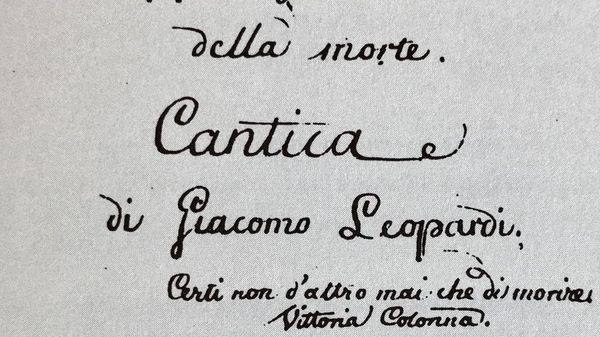 della morte.
Cantica
di Giacomo Leopardi.
Certi non d'altro mai che di morire
Vittoria Colonna.